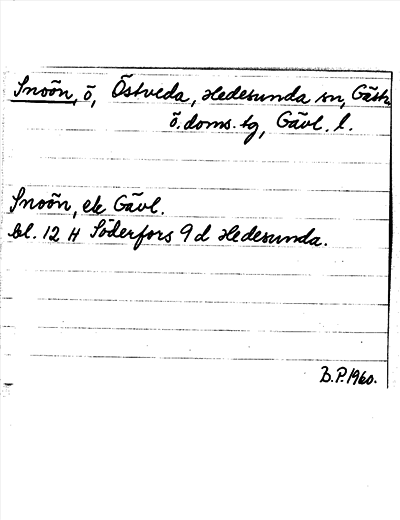 Snoön, ö, Östveda, Hedesunda sn, Gästr.
ö. doms. tg, Gävl. l.
Snoön, ek Gävl.
bl. 12 H Söderfors 9 d Hedesunda.
B.P. 1960.